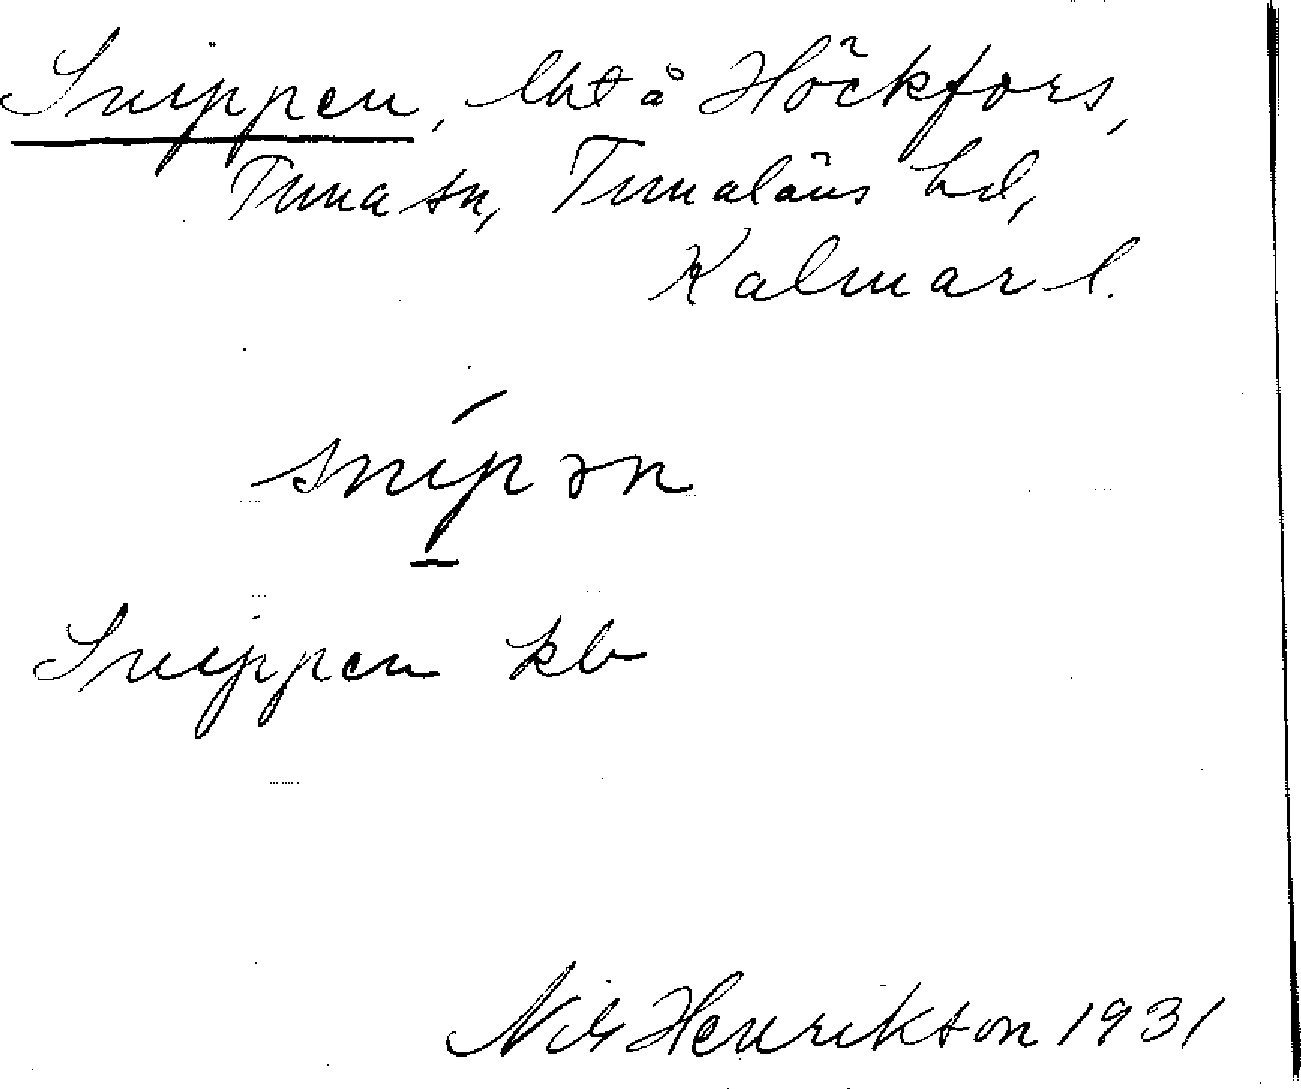 Snippen, lht å Höckfors,
Tuna sn, Tunaläns hd,
Kalmar l.
snipən
Snippen kb
Nils Henrikson 1931